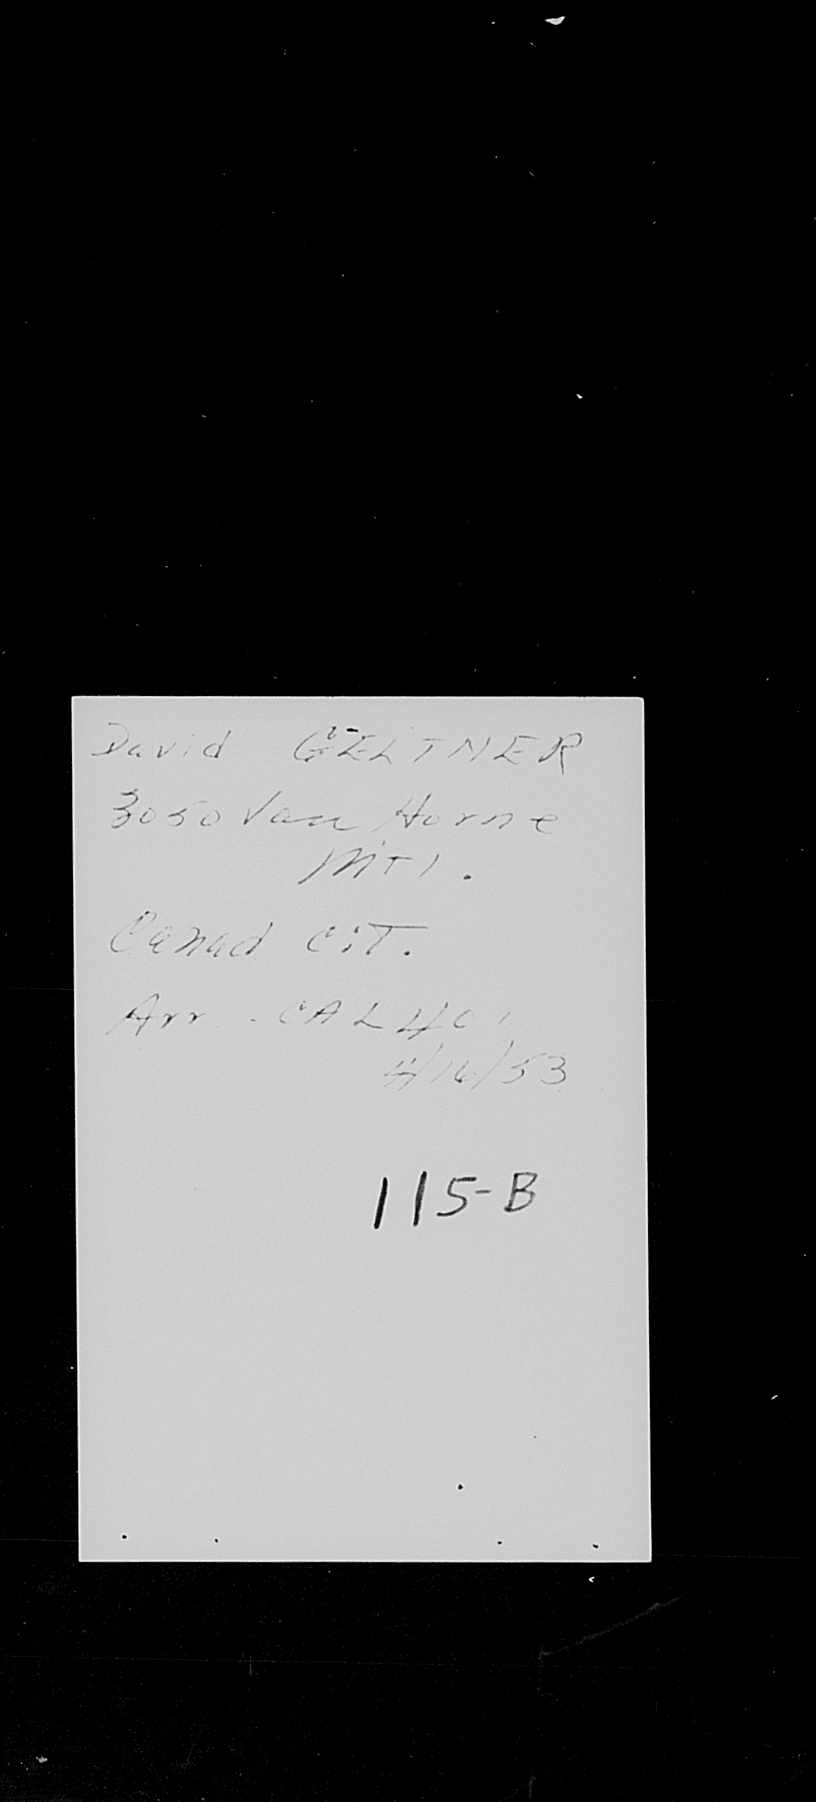 David GELTNER
3050 Van Horne
Mtl.
Canad Cit.
Arr. CAL 401
4/16/53
115-B